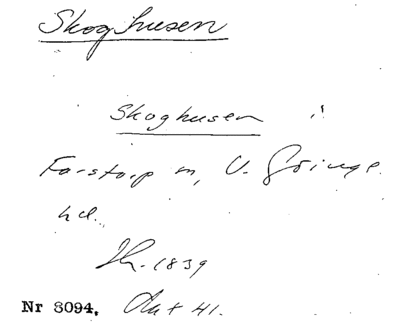 Skoghusen
Skoghusen i
Farstorp sn, V. Göinge
hd.
Jr. 1839
Nr 8094. Akt 41.